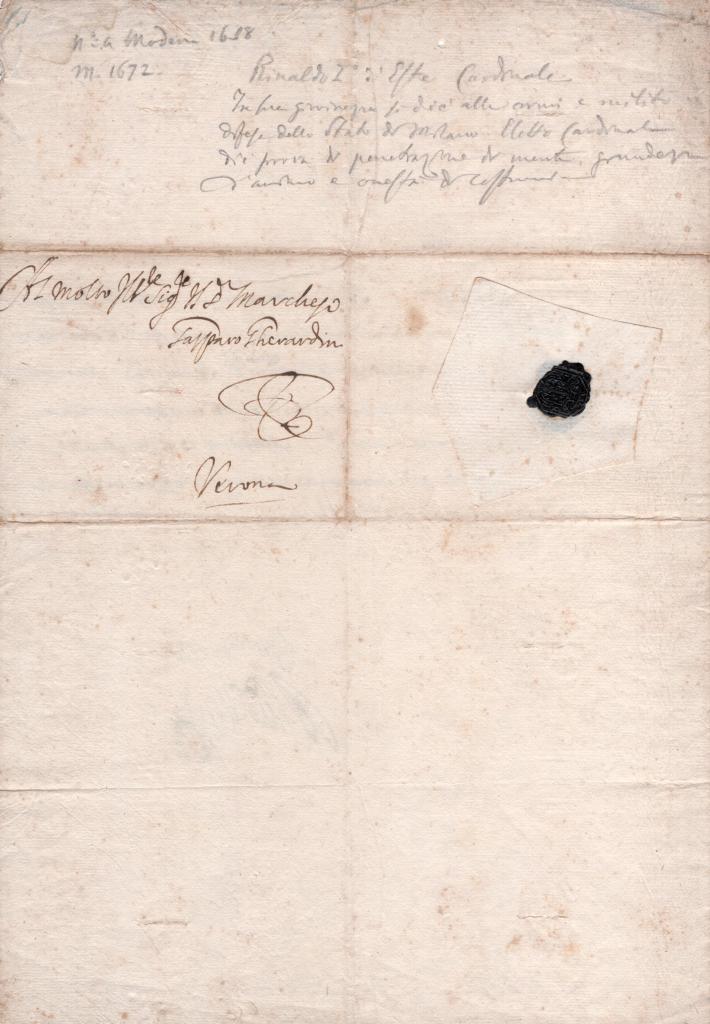 N.º a Modena 1618
M. 1672.
Rinaldo I.º d'Este Cardinale
In sua giovinezza si diè alle armi e militò
difesa dello Stato di Milano. Eletto Cardinale
diè prova di penetrazione di mente, grandezza
d'animo e onestà di costumi
Al molto Ill.re Sig.re Marchese
Gasparo Gherardin
Verona